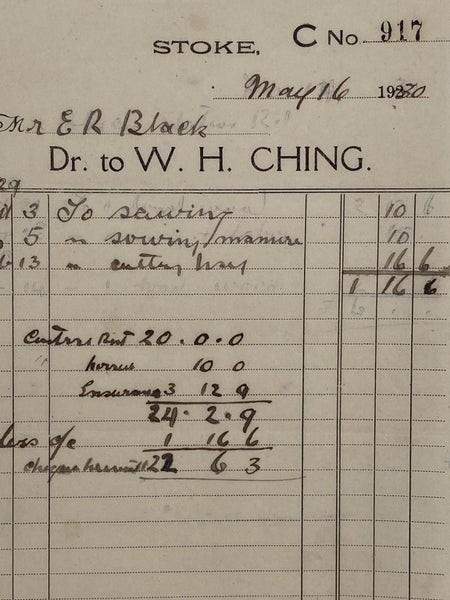 STOKE, C No. 917
May 16 1930
Mr E R Black
Dr. to W. H. CHING.
29
3 To sowing 10
5 " sowing manure 10
13 " cutting hay 16 6
1 16 6
Rent 20 . 0 . 0
" horses 10 0
Ensurance 3 12 9
24 . 2 . 9
less a/c 1 16 6
22 6 3